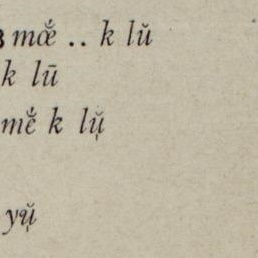 mœ̆́ .. k lŭ
k lū
mĕ́ k lṷ̆
yṷ̆